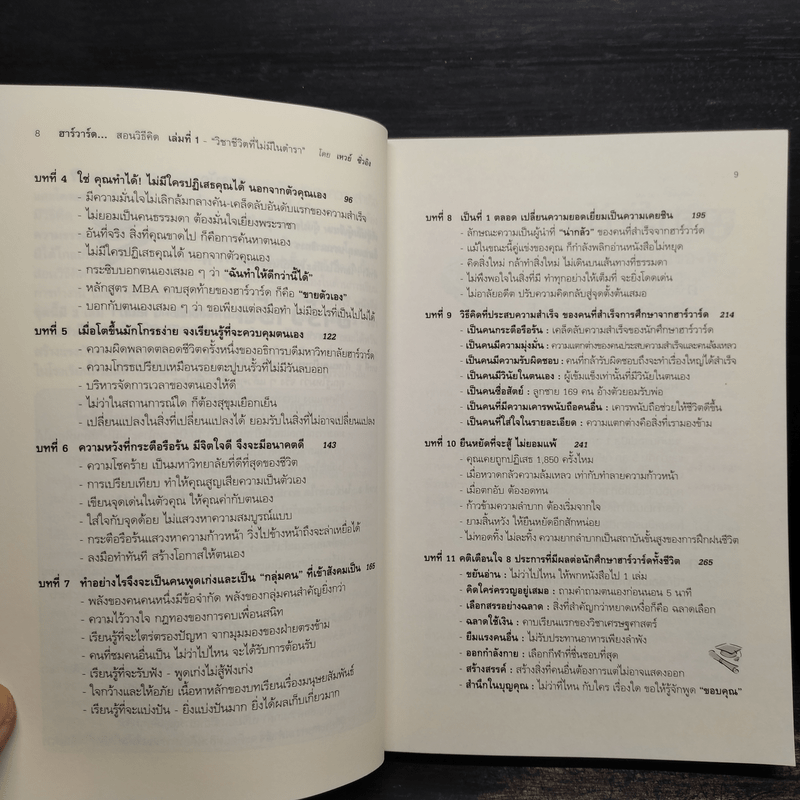 8 ฮาร์วาร์ด... สอนวิธีคิด เล่มที่ 1 - "วิชาชีวิตที่ไม่มีในตำรา" โดย เหวย์ ซิ่วอิง
บทที่ 4 ใช่ คุณทำได้! ไม่มีใครปฏิเสธคุณได้ นอกจากตัวคุณเอง 96
- มีความมั่นใจไม่เลิกล้มกลางคัน-เคล็ดลับอันดับแรกของความสำเร็จ
- ไม่ยอมเป็นคนธรรมดา ต้องมั่นใจเยี่ยงพระราชา
- อันที่จริง สิ่งที่คุณขาดไป ก็คือการค้นหาตนเอง
- ไม่มีใครปฏิเสธคุณได้ นอกจากตัวคุณเอง
- กระซิบบอกตนเองเสมอ ๆ ว่า "ฉันทำให้ดีกว่านี้ได้"
- หลักสูตร MBA คาบสุดท้ายของฮาร์วาร์ด ก็คือ "ขายตัวเอง"
- บอกกับตนเองเสมอ ๆ ว่า ขอเพียงแต่ลงมือทำ ไม่มีอะไรที่เป็นไปไม่ได้
บทที่ 5 เมื่อโตขึ้นมักโกรธง่าย จงเรียนรู้ที่จะควบคุมตนเอง 122
- ความผิดพลาดตลอดชีวิตครึ่งหนึ่งของอธิการบดีมหาวิทยาลัยฮาร์วาร์ด
- ความโกรธเปรียบเหมือนรอยตะปูบนรั้วที่ไม่มีวันลบออก
- บริหารจัดการเวลาของตนเองให้ดี
- ไม่ว่าในสถานการณ์ใด ก็ต้องสุขุมเยือกเย็น
- เปลี่ยนแปลงในสิ่งที่เปลี่ยนแปลงได้ ยอมรับในสิ่งที่ไม่อาจเปลี่ยนแปลง
บทที่ 6 ความหวังที่กระตือรือร้น มีจิตใจดี จึงจะมีอนาคตดี 143
- ความโชคร้าย เป็นมหาวิทยาลัยที่ดีที่สุดของชีวิต
- การเปรียบเทียบ ทำให้คุณสูญเสียความเป็นตัวเอง
- เขียนจุดเด่นในตัวคุณ ให้คุณค่ากับตนเอง
- ใส่ใจกับจุดด้อย ไม่แสวงหาความสมบูรณ์แบบ
- กระตือรือร้นแสวงหาความก้าวหน้า วิ่งไปข้างหน้าถึงจะล่าเหยื่อได้
- ลงมือทำทันที สร้างโอกาสให้ตนเอง
บทที่ 7 ทำอย่างไรจึงจะเป็นคนพูดเก่งและเป็น "กลุ่มคน" ที่เข้าสังคมเป็น 165
- พลังของคนคนหนึ่งมีข้อจำกัด พลังของกลุ่มคนสำคัญยิ่งกว่า
- ความไว้วางใจ กฎทองของการคบเพื่อนสนิท
- เรียนรู้ที่จะไตร่ตรองปัญหา จากมุมมองของฝ่ายตรงข้าม
- คนที่ชมคนอื่นเป็น ไม่ว่าไปไหน จะได้รับการต้อนรับ
- เรียนรู้ที่จะรับฟัง - พูดเก่งไม่สู้ฟังเก่ง
- ใจกว้างและให้อภัย เนื้อหาหลักของบทเรียนเรื่องมนุษยสัมพันธ์
- เรียนรู้ที่จะแบ่งปัน - ยิ่งแบ่งปันมาก ยิ่งได้ผลเก็บเกี่ยวมาก
9
บทที่ 8 เป็นที่ 1 ตลอด เปลี่ยนความยอดเยี่ยมเป็นความเคยชิน 195
- ลักษณะความเป็นผู้นำที่ "น่ากลัว" ของคนที่สำเร็จจากฮาร์วาร์ด
- แม้ในขณะนี้คู่แข่งของคุณ ก็กำลังพลิกอ่านหนังสือไม่หยุด
- คิดสิ่งใหม่ กล้าทำสิ่งใหม่ ไม่เดินบนเส้นทางที่ธรรมดา
- ไม่พึงพอใจในสิ่งที่มี ทำทุกอย่างให้เต็มที่ จะยิ่งโดดเด่น
- ไม่อาลัยอดีต ปรับความคิดกลับสู่จุดตั้งต้นเสมอ
บทที่ 9 วิธีคิดที่ประสบความสำเร็จ ของคนที่สำเร็จการศึกษาจากฮาร์วาร์ด 214
- เป็นคนกระตือรือร้น : เคล็ดลับความสำเร็จของนักศึกษาฮาร์วาร์ด
- เป็นคนมีความมุ่งมั่น : ความแตกต่างของคนประสบความสำเร็จและคนล้มเหลว
- เป็นคนมีความรับผิดชอบ : คนที่กล้ารับผิดชอบถึงจะทำเรื่องใหญ่ได้สำเร็จ
- เป็นคนมีวินัยในตนเอง : ผู้เข้มแข็งเท่านั้นที่มีวินัยในตนเอง
- เป็นคนซื่อสัตย์ : ลูกชาย 169 คน อ้างตัวยอมรับพ่อ
- เป็นคนที่มีความเคารพนับถือคนอื่น : เคารพนับถือช่วยให้ชีวิตดีขึ้น
- เป็นคนที่ใส่ใจในรายละเอียด : ความแตกต่างคือสิ่งที่เรามองข้าม
บทที่ 10 ยืนหยัดที่จะสู้ ไม่ยอมแพ้ 241
- คุณเคยถูกปฏิเสธ 1,850 ครั้งไหม
- เมื่อหวาดกลัวความล้มเหลว เท่ากับทำลายความก้าวหน้า
- เมื่อตกอับ ต้องอดทน
- ก้าวข้ามความลำบาก ต้องเริ่มจากใจ
- ยามสิ้นหวัง ให้ยืนหยัดอีกสักหน่อย
- ไม่ทอดทิ้ง ไม่ละทิ้ง ความยากลำบากเป็นสถาบันขั้นสูงของการฝึกฝนชีวิต
บทที่ 11 คติเตือนใจ 8 ประการที่มีผลต่อนักศึกษาฮาร์วาร์ดทั้งชีวิต 265
- ขยันอ่าน : ไม่ว่าไปไหน ให้พกหนังสือไป 1 เล่ม
- คิดใคร่ครวญอยู่เสมอ : ถามคำถามตนเองก่อนนอน 5 นาที
- เลือกสรรอย่างฉลาด : สิ่งที่สำคัญกว่าหยาดเหงื่อก็คือ ฉลาดเลือก
- ฉลาดใช้เงิน : คาบเรียนแรกของวิชาเศรษฐศาสตร์
- ยืมแรงคนอื่น : ไม่รับประทานอาหารเพียงลำพัง
- ออกกำลังกาย : เลือกกีฬาที่ชื่นชอบที่สุด
- สร้างสรรค์ : สร้างสิ่งที่คนอื่นต้องการแต่ไม่อาจแสดงออก
- สำนึกในบุญคุณ : ไม่ว่าที่ไหน กับใคร เรื่องใด ขอให้รู้จักพูด "ขอบคุณ"